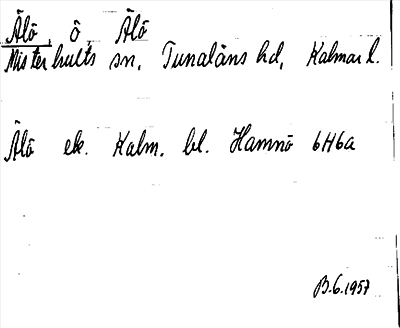 Älö, ö, Älö
Misterhults sn, Tunaläns hd, Kalmar l.
Älö ek. Kalm. bl. Hamnö 6H6a
B.G.1957